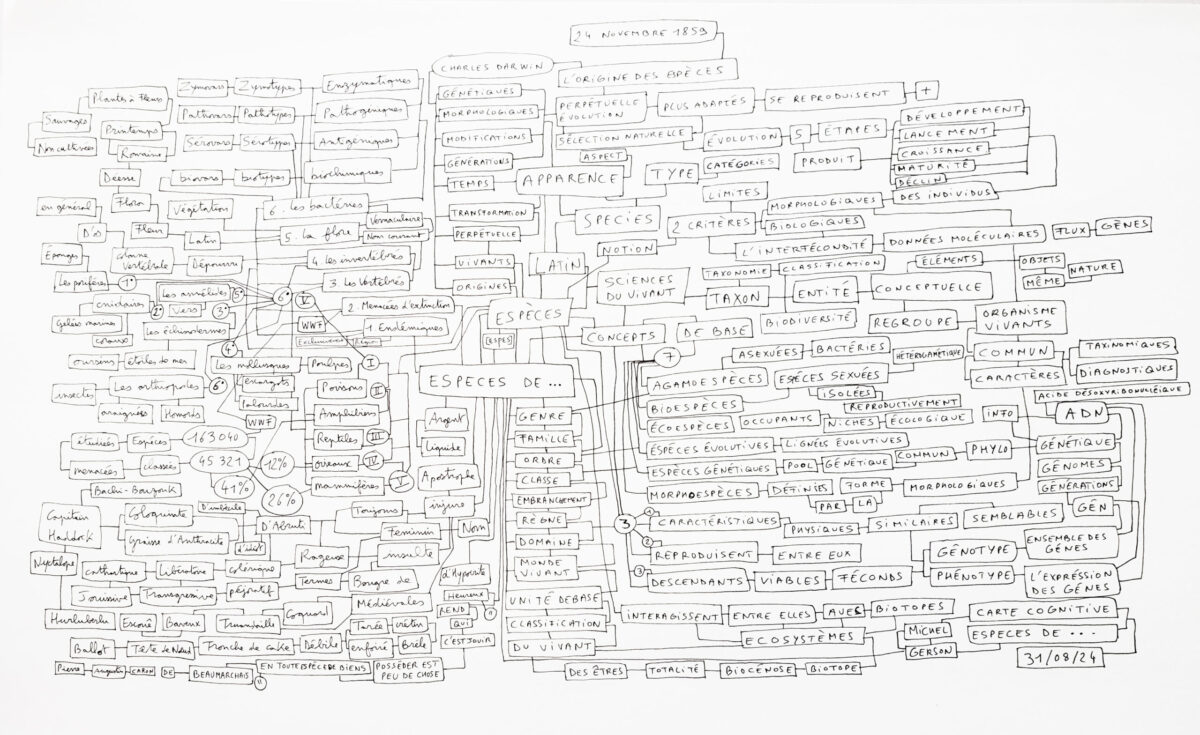 24 NOVEMBRE 1859
CHARLES DARWIN
L'ORIGINE DES ESPÈCES
GÉNÉTIQUES
MORPHOLOGIQUES
MODIFICATIONS
GÉNÉRATIONS
TEMPS
TRANSFORMATION
PERPÉTUELLE
VIVANTS
ORIGINES
PERPÉTUELLE ÉVOLUTION
PLUS ADAPTÉS
SE REPRODUISENT
+
SÉLECTION NATURELLE
ÉVOLUTION
5
ÉTAPES
PRODUIT
DÉVELOPPEMENT
LANCEMENT
CROISSANCE
MATURITÉ
DÉCLIN
ASPECT
APPARENCE
TYPE
CATÉGORIES
LIMITES
SPECIES
NOTION
LATIN
2 CRITÈRES
MORPHOLOGIQUES
DES INDIVIDUS
BIOLOGIQUES
L'INTERFÉCONDITÉ
DONNÉES MOLÉCULAIRES
FLUX
GÈNES
SCIENCES DU VIVANT
TAXONOMIE
CLASSIFICATION
TAXON
ENTITÉ
CONCEPTUELLE
ÉLÉMENTS
OBJETS
MÊME
NATURE
BIODIVERSITÉ
REGROUPE
ORGANISME VIVANTS
COMMUN
CARACTÈRES
TAXINOMIQUES
DIAGNOSTIQUES
ESPÈCES
[ESPES]
ESPECES DE ...
CONCEPTS
DE BASE
7
ASEXUÉES
BACTÉRIES
AGAMOESPÈCES
ESPÈCES SEXUÉES
HÉTÉROGAMÉTIQUE
BIOESPÈCES
ISOLÉES
REPRODUCTIVEMENT
ÉCOESPÈCES
OCCUPANTS
NICHES
ÉCOLOGIQUE
ESPÈCES ÉVOLUTIVES
LIGNÉES ÉVOLUTIVES
ESPÈCES GÉNÉTIQUES
POOL
GÉNÉTIQUE
COMMUN
PHYLO
GÉNÉTIQUE
MORPHOESPÈCES
DÉFINIES
PAR
LA
FORME
MORPHOLOGIQUES
INFO
ADN
ACIDE DÉSOXYRIBONUCLÉIQUE
GÉNOMES
GÉNÉRATIONS
GÉN
ENSEMBLE DES GÈNES
GÉNOTYPE
PHÉNOTYPE
L'EXPRESSION DES GÈNES
3
1
CARACTÉRISTIQUES
PHYSIQUES
SIMILAIRES
SEMBLABLES
2
REPRODUISENT
ENTRE EUX
3
DESCENDANTS
VIABLES
FÉCONDS
GENRE
FAMILLE
ORDRE
CLASSE
EMBRANCHEMENT
RÈGNE
DOMAINE
MONDE VIVANT
UNITÉ DE BASE
CLASSIFICATION
DU VIVANT
INTERAGISSENT
ENTRE ELLES
AVEC
BIOTOPES
ECOSYSTÈMES
DES ÊTRES
TOTALITÉ
BIOCÉNOSE
BIOTOPE
MICHEL
GERSON
CARTE COGNITIVE
ESPECES DE ...
31/08/24
Zymovars
Zymotypes
Enzymatiques
Pathovars
Pathotypes
Pathogéniques
Sérovars
Sérotypes
Antigéniques
biovars
biotypes
biochimiques
6. les bactéries
Plantes à Fleurs
Sauvages
Non cultivées
Printemps
Romaine
Deesse
Flora
Fleur
Végétation
Latin
5. la flore
Vernaculaire
Nom courant
en général
D'os
Colonne Vertébrale
Dépourvu
4 les invertébrés
3. Les Vertébrés
2. Menacées d'extinction
1. Endémiques
WWF
Exclusivement
Région
Éponges
Les porifères
1°
cnidaires
2°
Gelées marines
coraux
Les annélides
5°
Vers
3°
6°
V
Les échinodermes
oursins
étoiles de mer
4°
Les mollusques
Poulpes
escargots
palourdes
insectes
Les arthropodes
6°
araignées
Homards
I
Poissons
II
Amphibiens
Reptiles
III
oiseaux
IV
mammifères
V
WWF
étudiées
Espèces
163 040
menacées
classées
45 321
12%
41%
26%
Argent
liquide
Apostrophe
injure
Toujours
Feminin
insulte
Nom
Bachi-Bouzouk
Capitain Haddock
Coloquinte
Graisse d'Anthracite
D'imbécile
D'Abruti
d'idiot
Rageuse
Termes
Bougre de
d'Hypocrite
Nyctalope
cathartique
Libératoire
colérique
Jouissive
Transgressive
péjoratif
Médiévales
Coquard
Hurluberlu
Baveux
Truandaille
Tarée
crétin
Ballot
Tête de Nœud
Tronche de Cake
Débile
enfoiré
Brêle
Heureux
REND
QUI
C'EST JOUIR
Pierre
Augustin
CARON
DE
BEAUMARCHAIS
"
EN TOUTE ESPÈCE DE BIENS
POSSÉDER EST PEU DE CHOSE
"